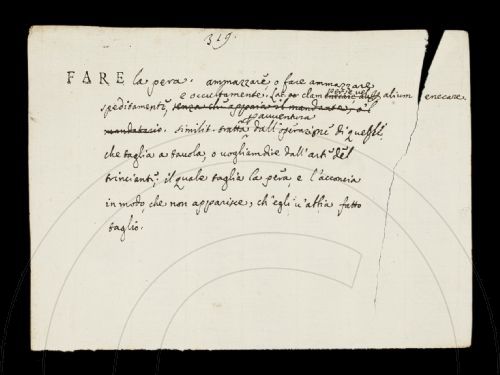 319.
FARE la pera. ammazzare o fare ammazzare
e occultamente. Lat. clam alium enecare
speditamente, senza chi apparia il mandante, o 'l
mandatario. similit. tratta dall'operazione di quegli,
che taglia a tavola, o vogliam dire dall'arte del
trinciante, il quale taglia la pera, e l'acconcia
in modo, che non apparisce, ch'egli v'abbia fatto
taglio.